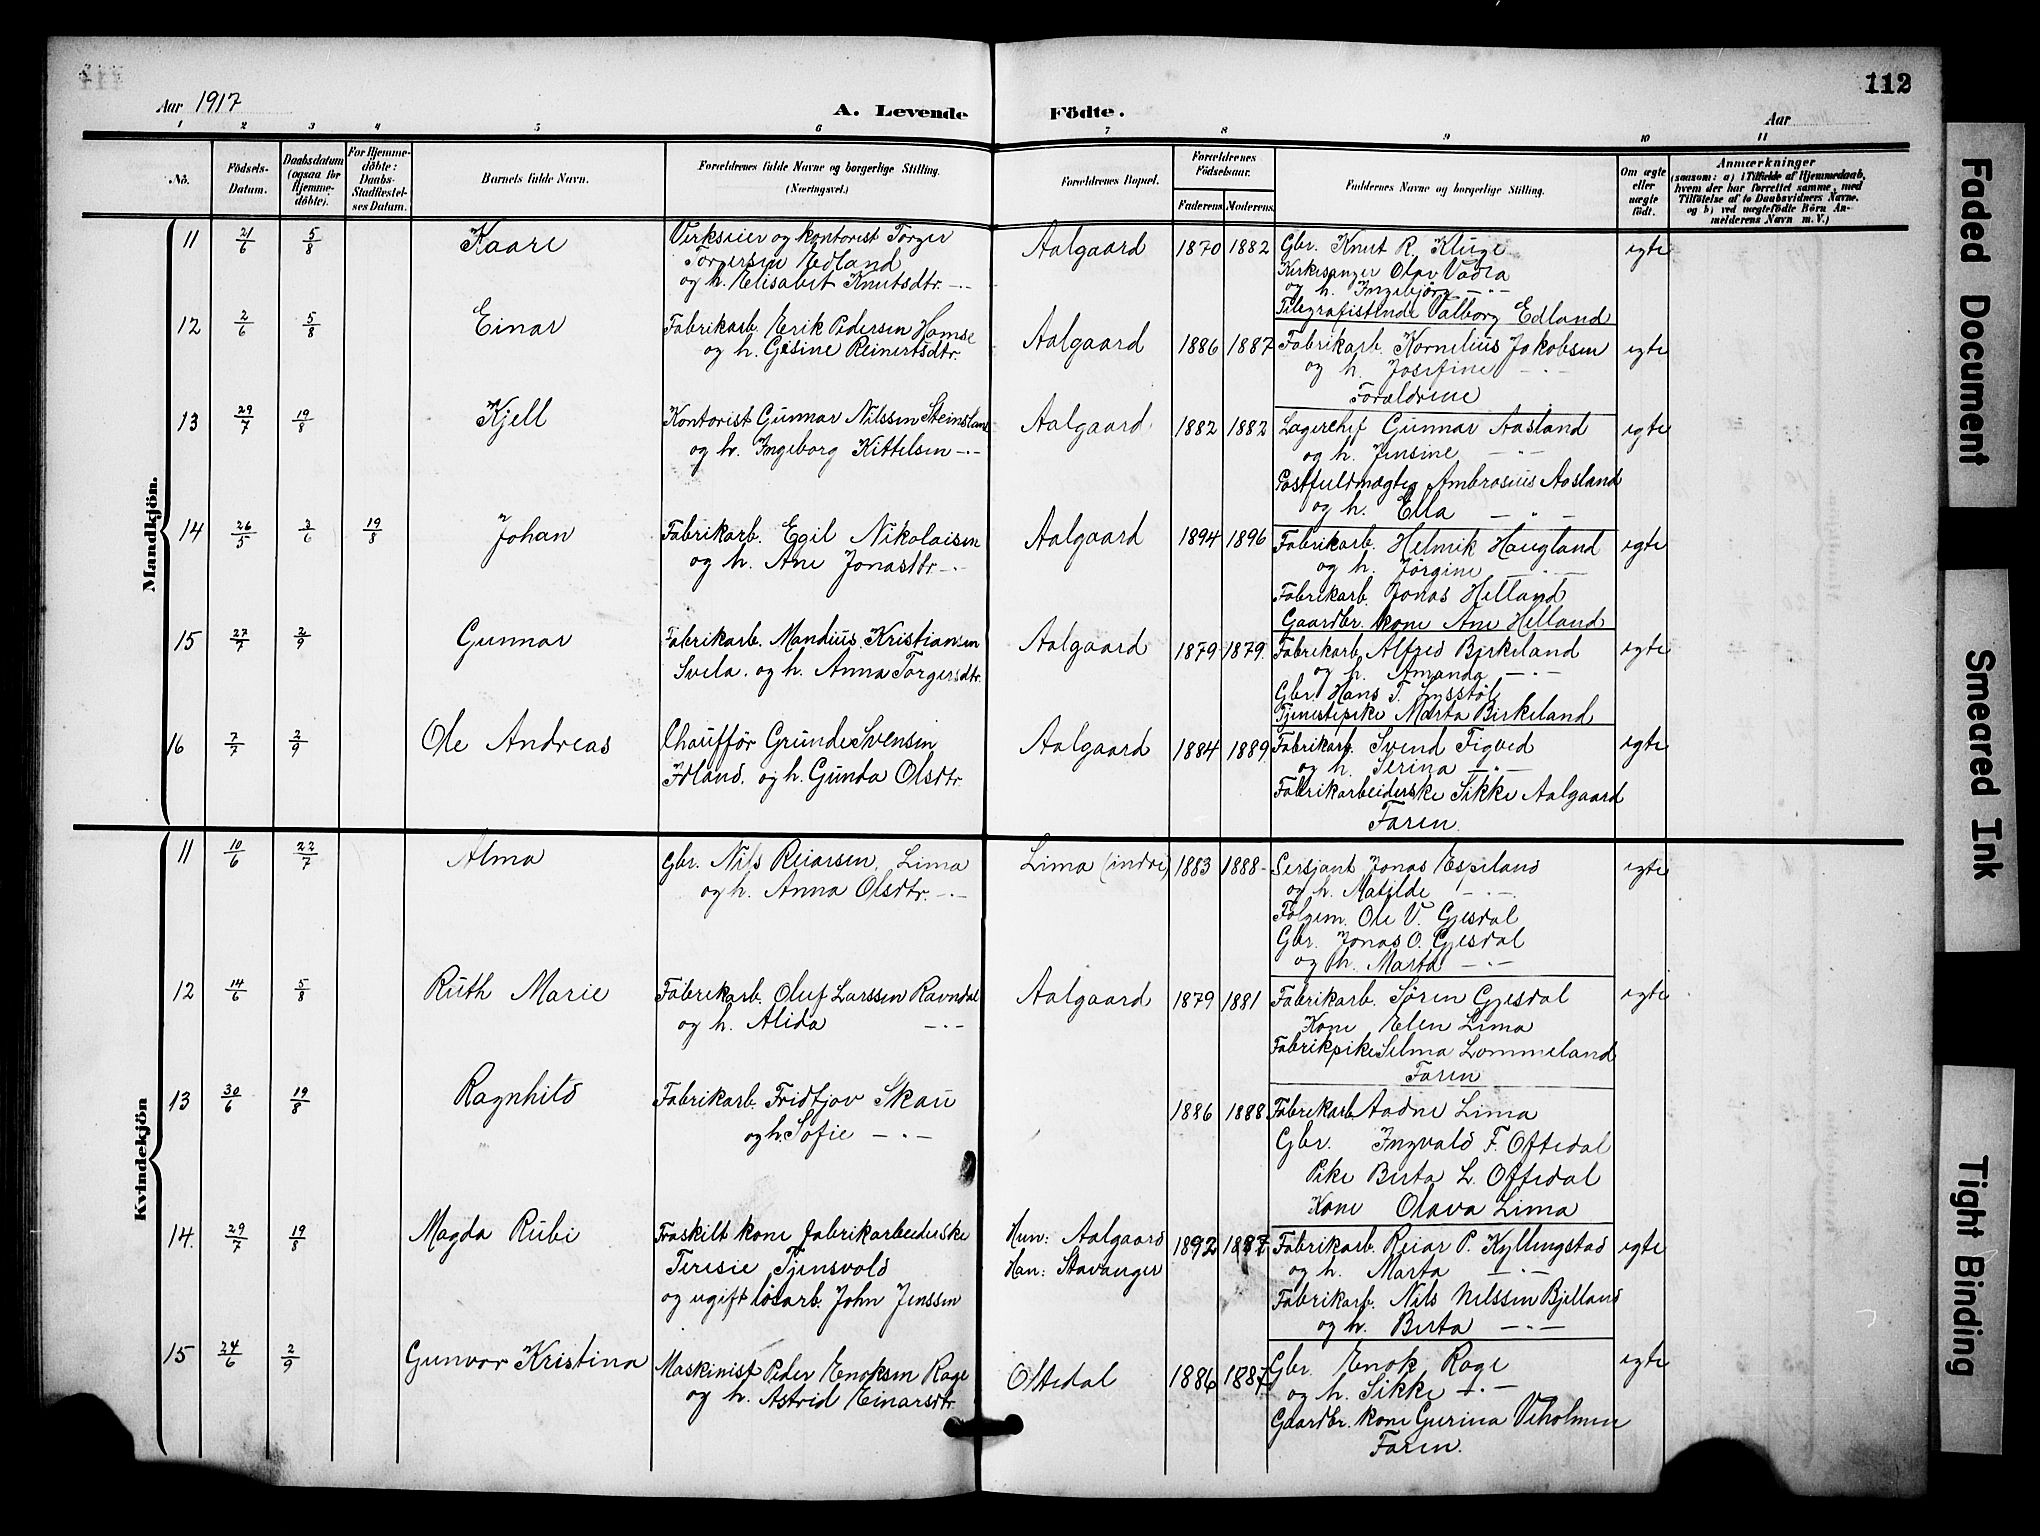 112
Aar 1917
A. Levende Födte.
Aar
1 2 3 4 5 6 7 8 9 10 11
No.
Födsels-Datum.
Daabsdatum (ogsaa for Hjemme-döbte).
For Hjemme-döbte: Daabs-Stadfæstel-ses Datum.
Barnets fulde Navn.
Forældrenes fulde Navne og borgerlige Stilling. (Næringsvei.)
Forældrenes Bopæl.
Forældrenes Födselsaar.
Faderens Moderens
Faddernes Navne og borgerlige Stilling.
Om ægte eller uægte födt.
Anmærkninger
(saasom: a) i Tilfælde af Hjemmedaab, hvem der har forrettet samme, med Tilföielse af to Daabsvidners Navne. og b) ved uægtefödte Börn An-melderens Navn m. V.)
Mandkjön.
11 21/6 5/8 Kaare
Verkseier og kontorist Torger
Torgersen Edland
og h. Elisabet Knutsdtr. -.-
Aalgaard 1870 1882
Gbr. Knut R. Kluge
Kirkesanger Olav Vadla
og h. Ingebjörg -"-
Telegrafistinde Valborg Edland
egte
12 2/6 5/8 Einar
Fabrikarb. Erik Pedersen Hamse
og h. Gesine Reinertsdtr.
Aalgaard 1886 1887
Fabrikarb. Kornelius Jakobsen
og h. Josefine -.-
Foraldrene
egte
13 29/7 19/8 Kjell
Kontorist Gunnar Nilssen Steinsland
og h. Ingeborg Kittelsen -.-
Aalgaard 1882 1882
Lagerchef Gunnar Aasland
og h. Jensine -"-
Postfuldmægtig Ambrosius Aasland
og h. Ella -"-
egte
14 26/5 3/6 19/8 Johan
Fabrikarb. Egil Nikolaisen
og h. Ane Jonasdtr -.-
Aalgaard 1894 1896
Fabrikarb. Helmik Haugland
og h. Jörgine -.-
Fabrikarb. Jonas Helland
Gaardbr. kone Ane Helland
egte
15 27/7 2/9 Gunnar
Fabrikarb. Mandius Kristiansen
Svela. og h. Anna Torgersdtr.
Aalgaard 1879 1879
Fabrikarb. Alfred Birkeland
og h. Amanda -.-
Gbr. Hans T.
Tjenestepike Marta Birkeland
egte
16 7/7 2/9 Ole Andreas
Chaufför Grunde Svensen
Edland. og h. Gunda Olsdtr.
Aalgaard 1884 1889
Fabrikarb. Svend Figved
og h. Serina -"-
Fabrikarbeiderske Sikke Aalgaard
Faren.
egte
Kvindekjön
11 10/6 22/7 Alma
Gbr. Nils Reiarsen, Lima
og h. Anna Olsdtr. -.-
Lima (indre) 1883 1888
Sersjant Jonas Espeland
og h. Matilde -.-
Folgem. Ole V. Gjesdal
Gbr. Jonas O. Gjesdal
og h. Marta -.-
egte
12 14/6 5/8 Ruth Marie
Fabrikarb. Oluf Larssen Ravndal
og h. Alida -.-
Aalgaard 1879 1881
Fabrikarb. Sören Gjesdal
Kone Elen Lima
Fabrikpike Selma Lommeland
Faren
egte
13 30/6 19/8 Ragnhild
Fabrikarb. Fridtjov Skau
og h. Sofie -.-
1886 1888
Fabrikarb Aadne Lima
Gbr. Ingvald F. Oftedal
Pike Berta L. Oftedal
Kone Olava Lima
14. 29/7 19/8 Magda Rubi
Fraskilt kone fabrikarbeiderske
Teresie Tjensvold
og ugift lösarb. John Jenssen
Hun: Aalgaard
Han: Stavanger
1892 1887
Fabrikarb. Reiar P. Kyllingstad
og h. Marta -.-
Fabrikarb. Nils Nilssen Bjelland
og h. Berta -.-
egte
15 24/6 2/9 Gunvor Kristina
Maskinist Peder Enoksen Rage
og h. Astrid Einarsdtr.
Oltedal 1886 1887
Gbr Enok Rage
og h. Sikke -.-
Gaardbr. kone Gurina Veholmen
Faren.
egte
Faded Document
Smeared Ink
Tight Binding